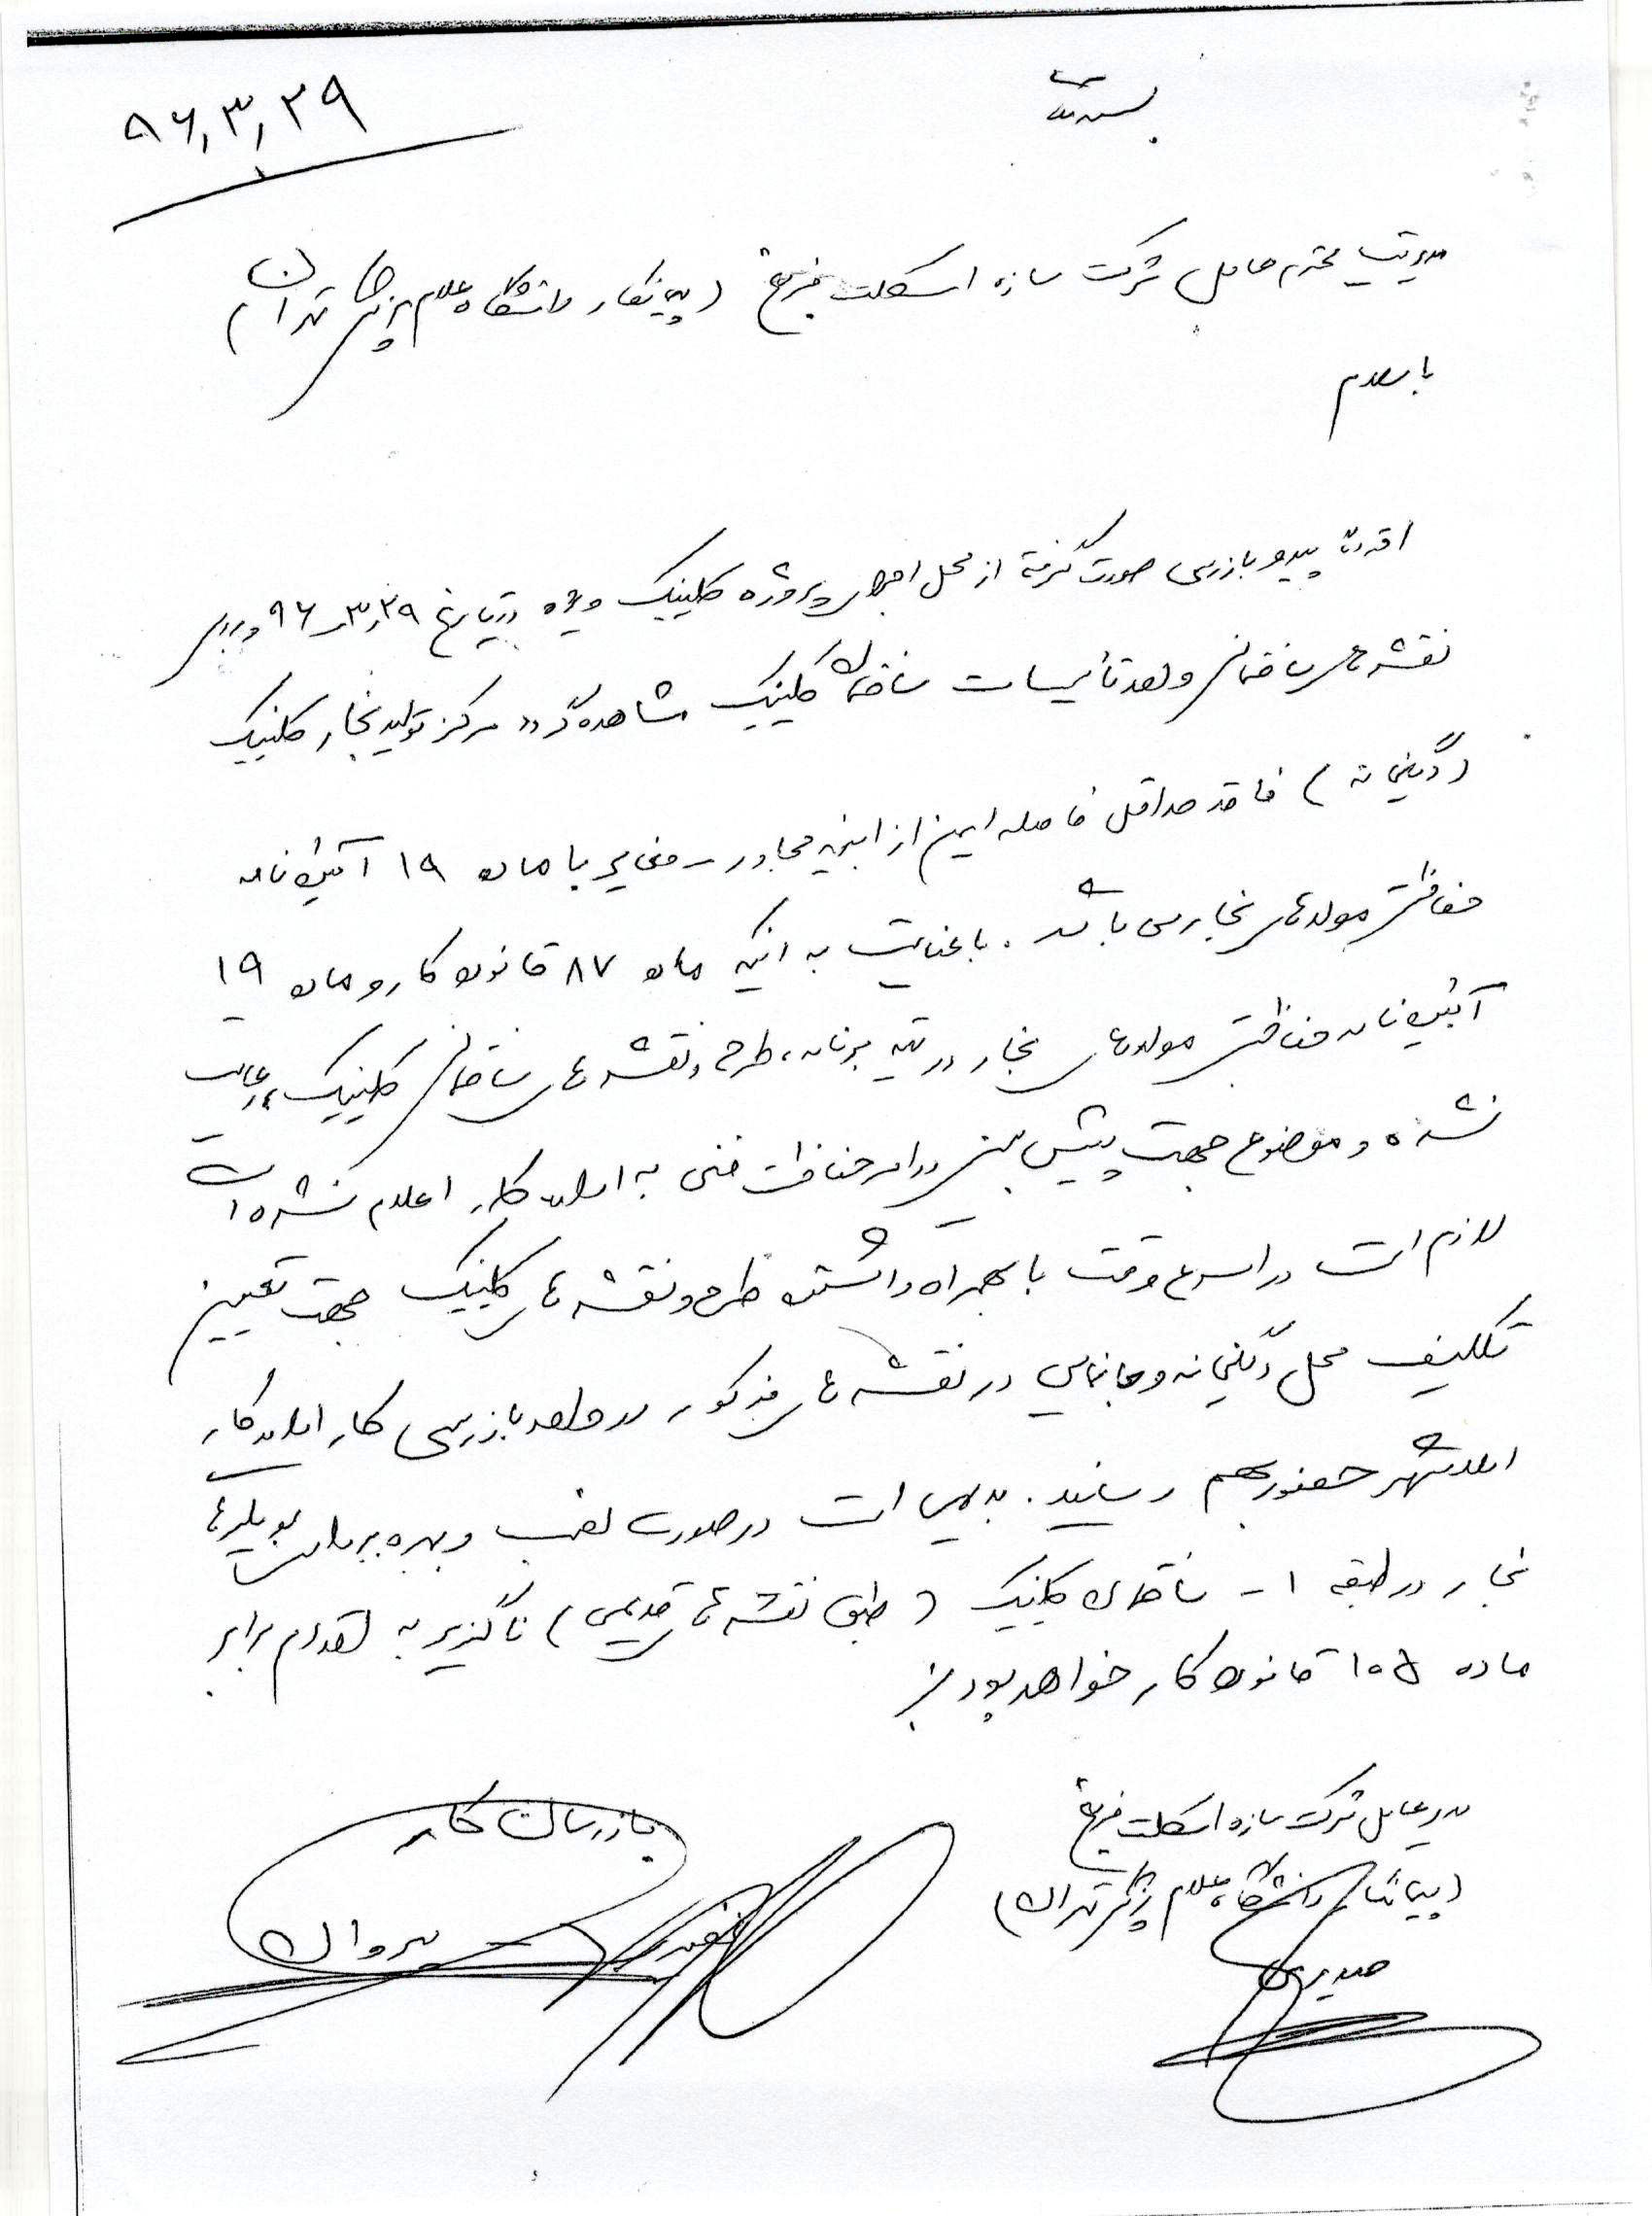 بسمه تعالی
۹۶,۳,۲۹
مدیریت محترم عامل شرکت سازه اسکلت (پیمانکار دانشگاه علوم پزشکی تهران)
با سلام
احتراماً پیرو بازرسی صورت گرفته از محل اجرای پروژه کلینیک ویژه در تاریخ ۹۶,۳,۲۹ و بررسی
نقشه های ساختمانی و واحد تأسیسات ساختمان کلینیک مشاهده گردید مرکز تولید بخار کلینیک
(دیگخانه) فاقد حداقل فاصله ایمن از ابنیه مجاور - مغایر با ماده ۱۹ آئین نامه
حفاظتی مولدهای بخار می باشد . با عنایت به اینکه ماده ۸۷ قانون کار و ماده ۱۹
آئین نامه حفاظتی مولدهای بخار در تهیه برنامه، طرح و نقشه های ساختمانی کلینیک رعایت
نشده و موضوع جهت پیش بینی در امر حفاظت فنی به اداره کار اعلام نشده است
لازم است در اسرع وقت با بهمراه داشتن طرح و نقشه های کلینیک جهت تعیین
تکلیف محل دیگخانه و جانمایی در نقشه های مذکور در واحد بازرسی کار اداره کار
اسلامشهر حضور بهم رسانید . بدیهی است در صورت نصب و بهره برداری بویلرهای
بخار در طبقه ۱- ساختمان کلینیک (طبق نقشه های تقدیمی) ناگزیر به اقدام برابر
ماده ۱۰۵ قانون کار خواهد بود
مدیرعامل شرکت سازه اسکلت
(پیمانکار دانشگاه علوم پزشکی تهران)
حیدری
بازرسان کار